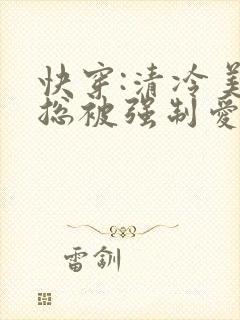 快穿:清冷美
总被强制爱
雷钏